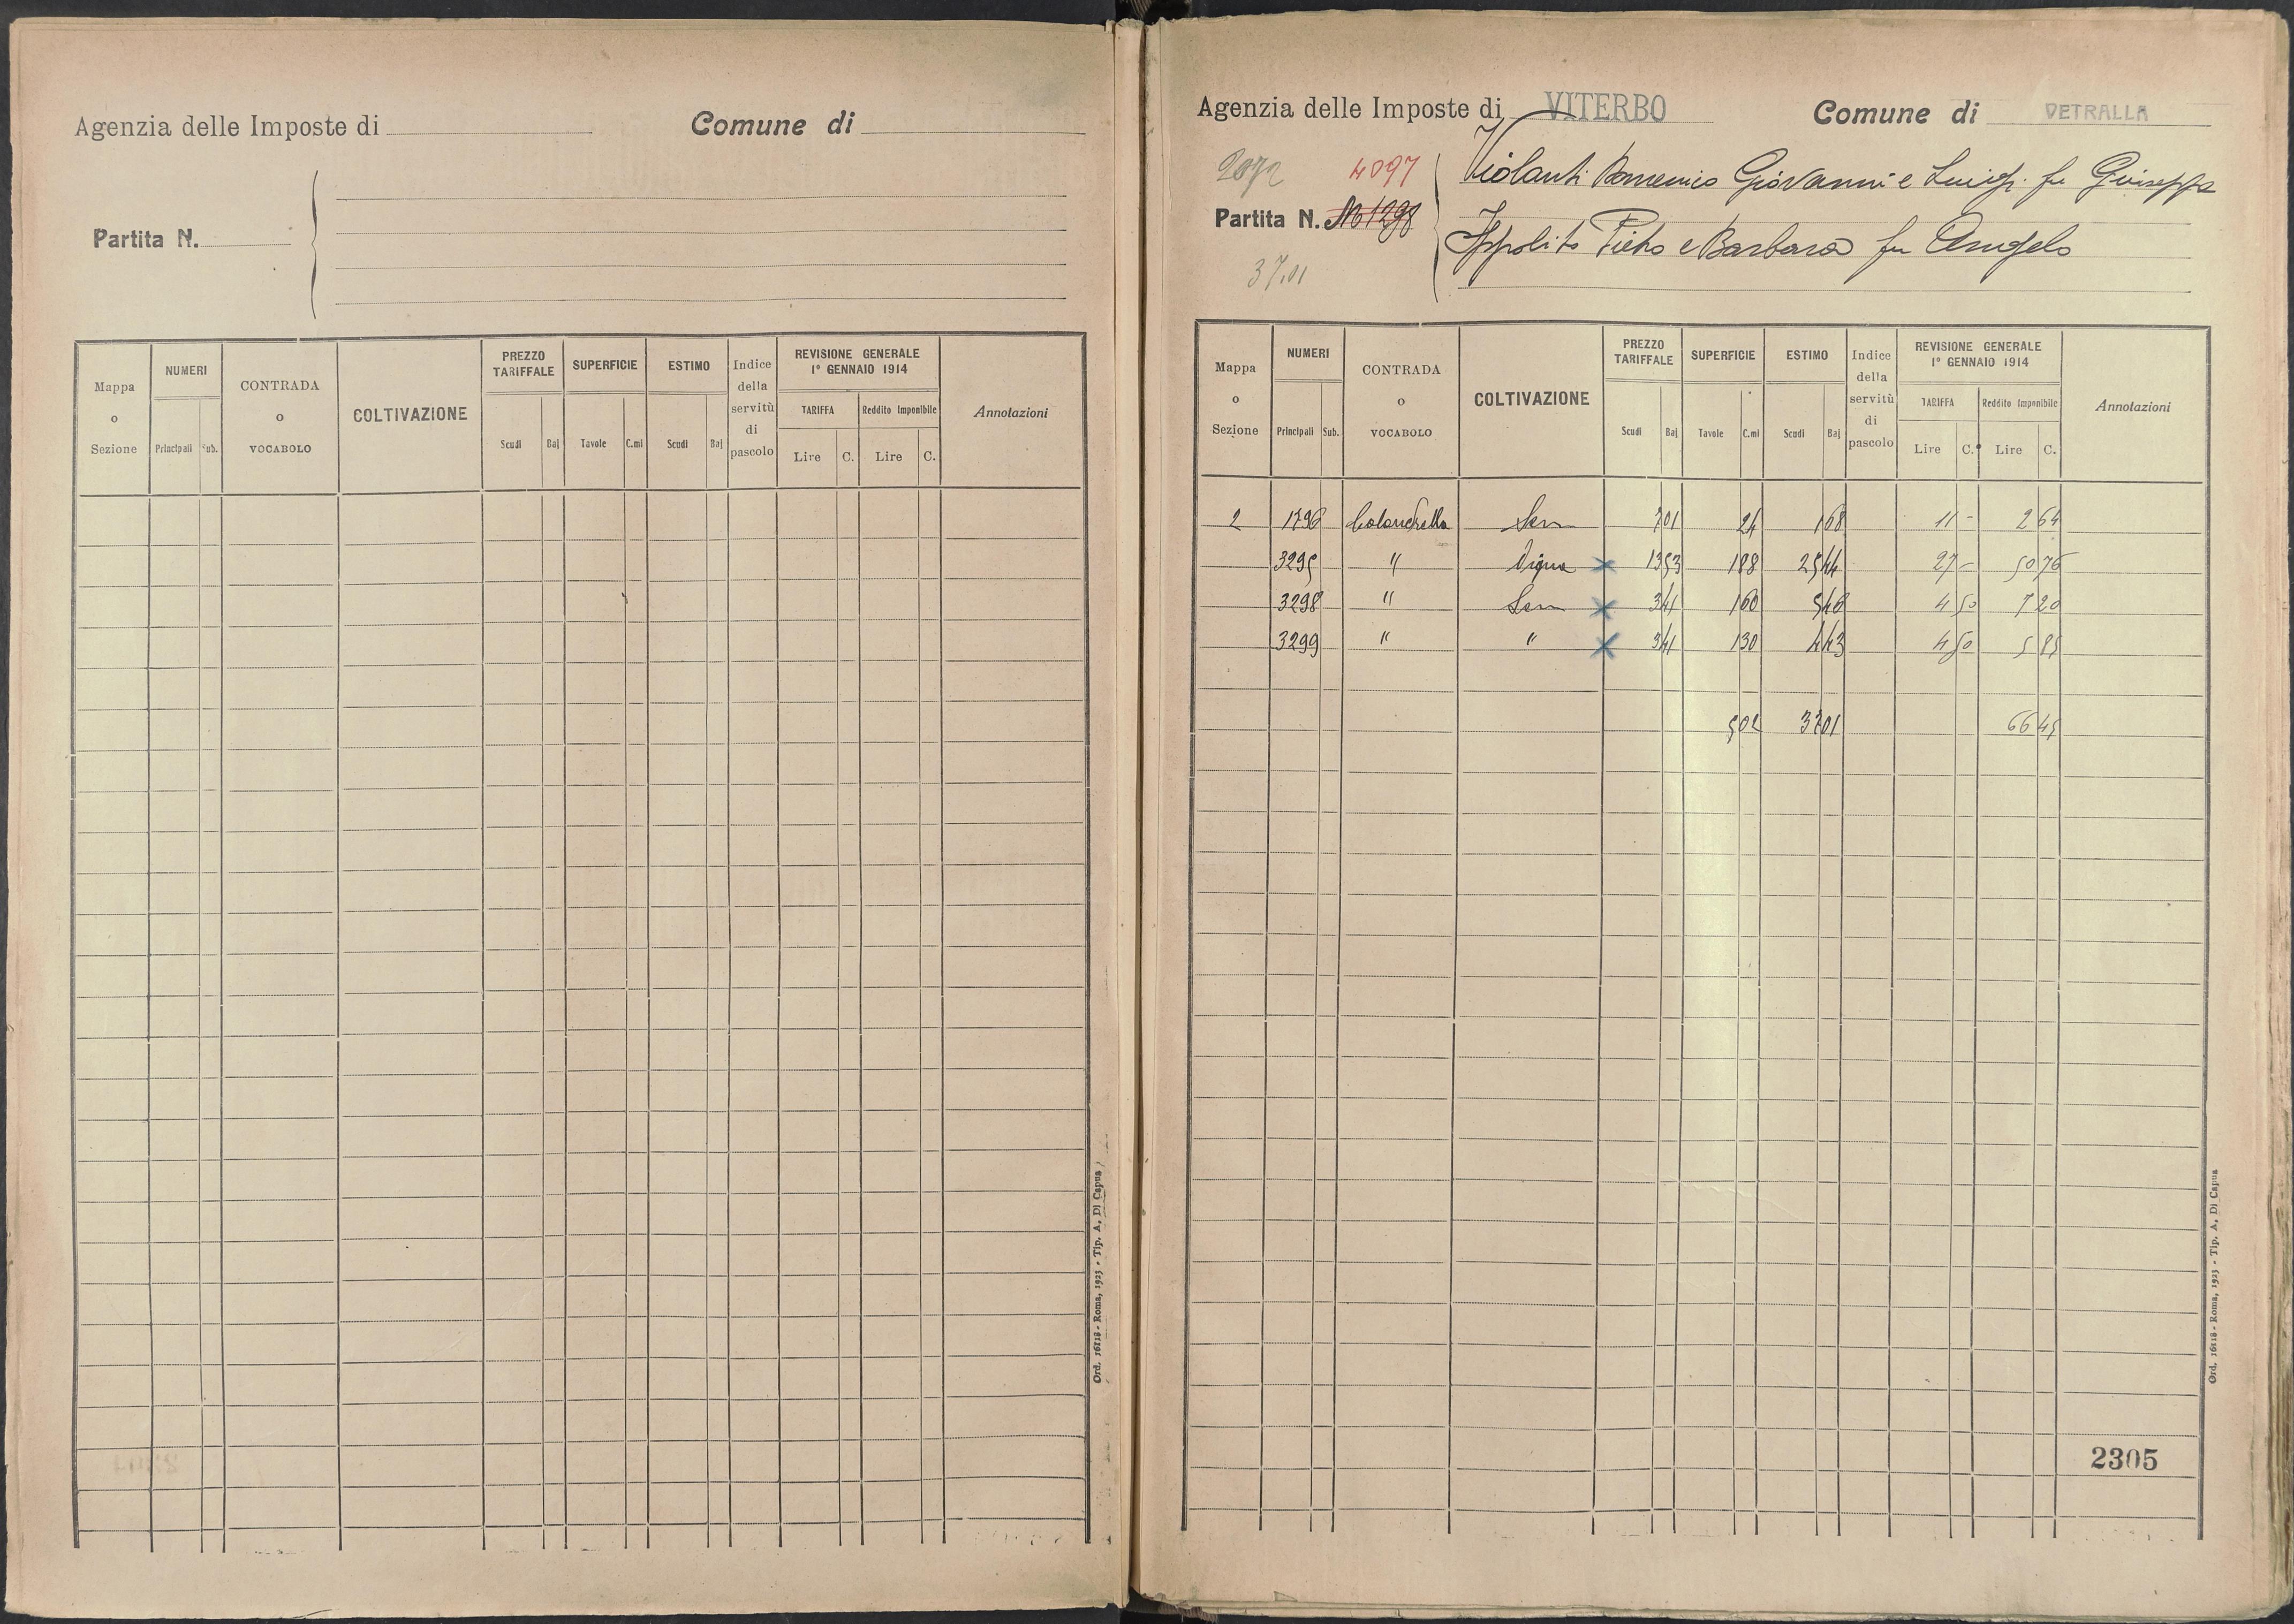 Agenzia delle Imposte di Comune di
Partita N.
Mappa o Sezione NUMERI Principali Sub. CONTRADA o VOCABOLO COLTIVAZIONE PREZZO TARIFFALE Scudi Baj SUPERFICIE Tavole C.mi ESTIMO Scudi Baj Indice della servitù di pascolo REVISIONE GENERALE 1° GENNAIO 1914 TARIFFA Lire C. Reddito Imponibile Lire C. Annotazioni
Ord. 16118 - Roma, 1923 - Tip. A. Di Capua
Agenzia delle Imposte di VITERBO Comune di VETRALLA
2072 4097 Violanti Domenico Giovanni e Luigi fu Giuseppe
Partita N. 1298 Ippolito Pietro e Barbara fu Angelo
37.01
Mappa o Sezione NUMERI Principali Sub. CONTRADA o VOCABOLO COLTIVAZIONE PREZZO TARIFFALE Scudi Baj SUPERFICIE Tavole C.mi ESTIMO Scudi Baj Indice della servitù di pascolo REVISIONE GENERALE 1° GENNAIO 1914 TARIFFA Lire C. Reddito Imponibile Lire C. Annotazioni
2 1796 Sem 7 01 24 1 68 11 - 2 64
3295 " Vigna 13 53 1 88 25 44 27 - 50 76
3298 " Sem 3 41 1 60 5 46 4 50 7 20
3299 " " 3 41 1 30 4 43 4 50 5 85
5 02 37 01 66 45
2305
Ord. 16118 - Roma, 1923 - Tip. A. Di Capua